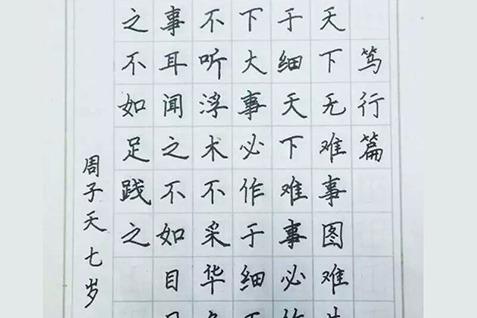 笃行篇
天下无难事图难
于细天下难事必
下大事必作于细
不听浮术不采华
事耳闻之不如目
之不如足践之
周子天七岁